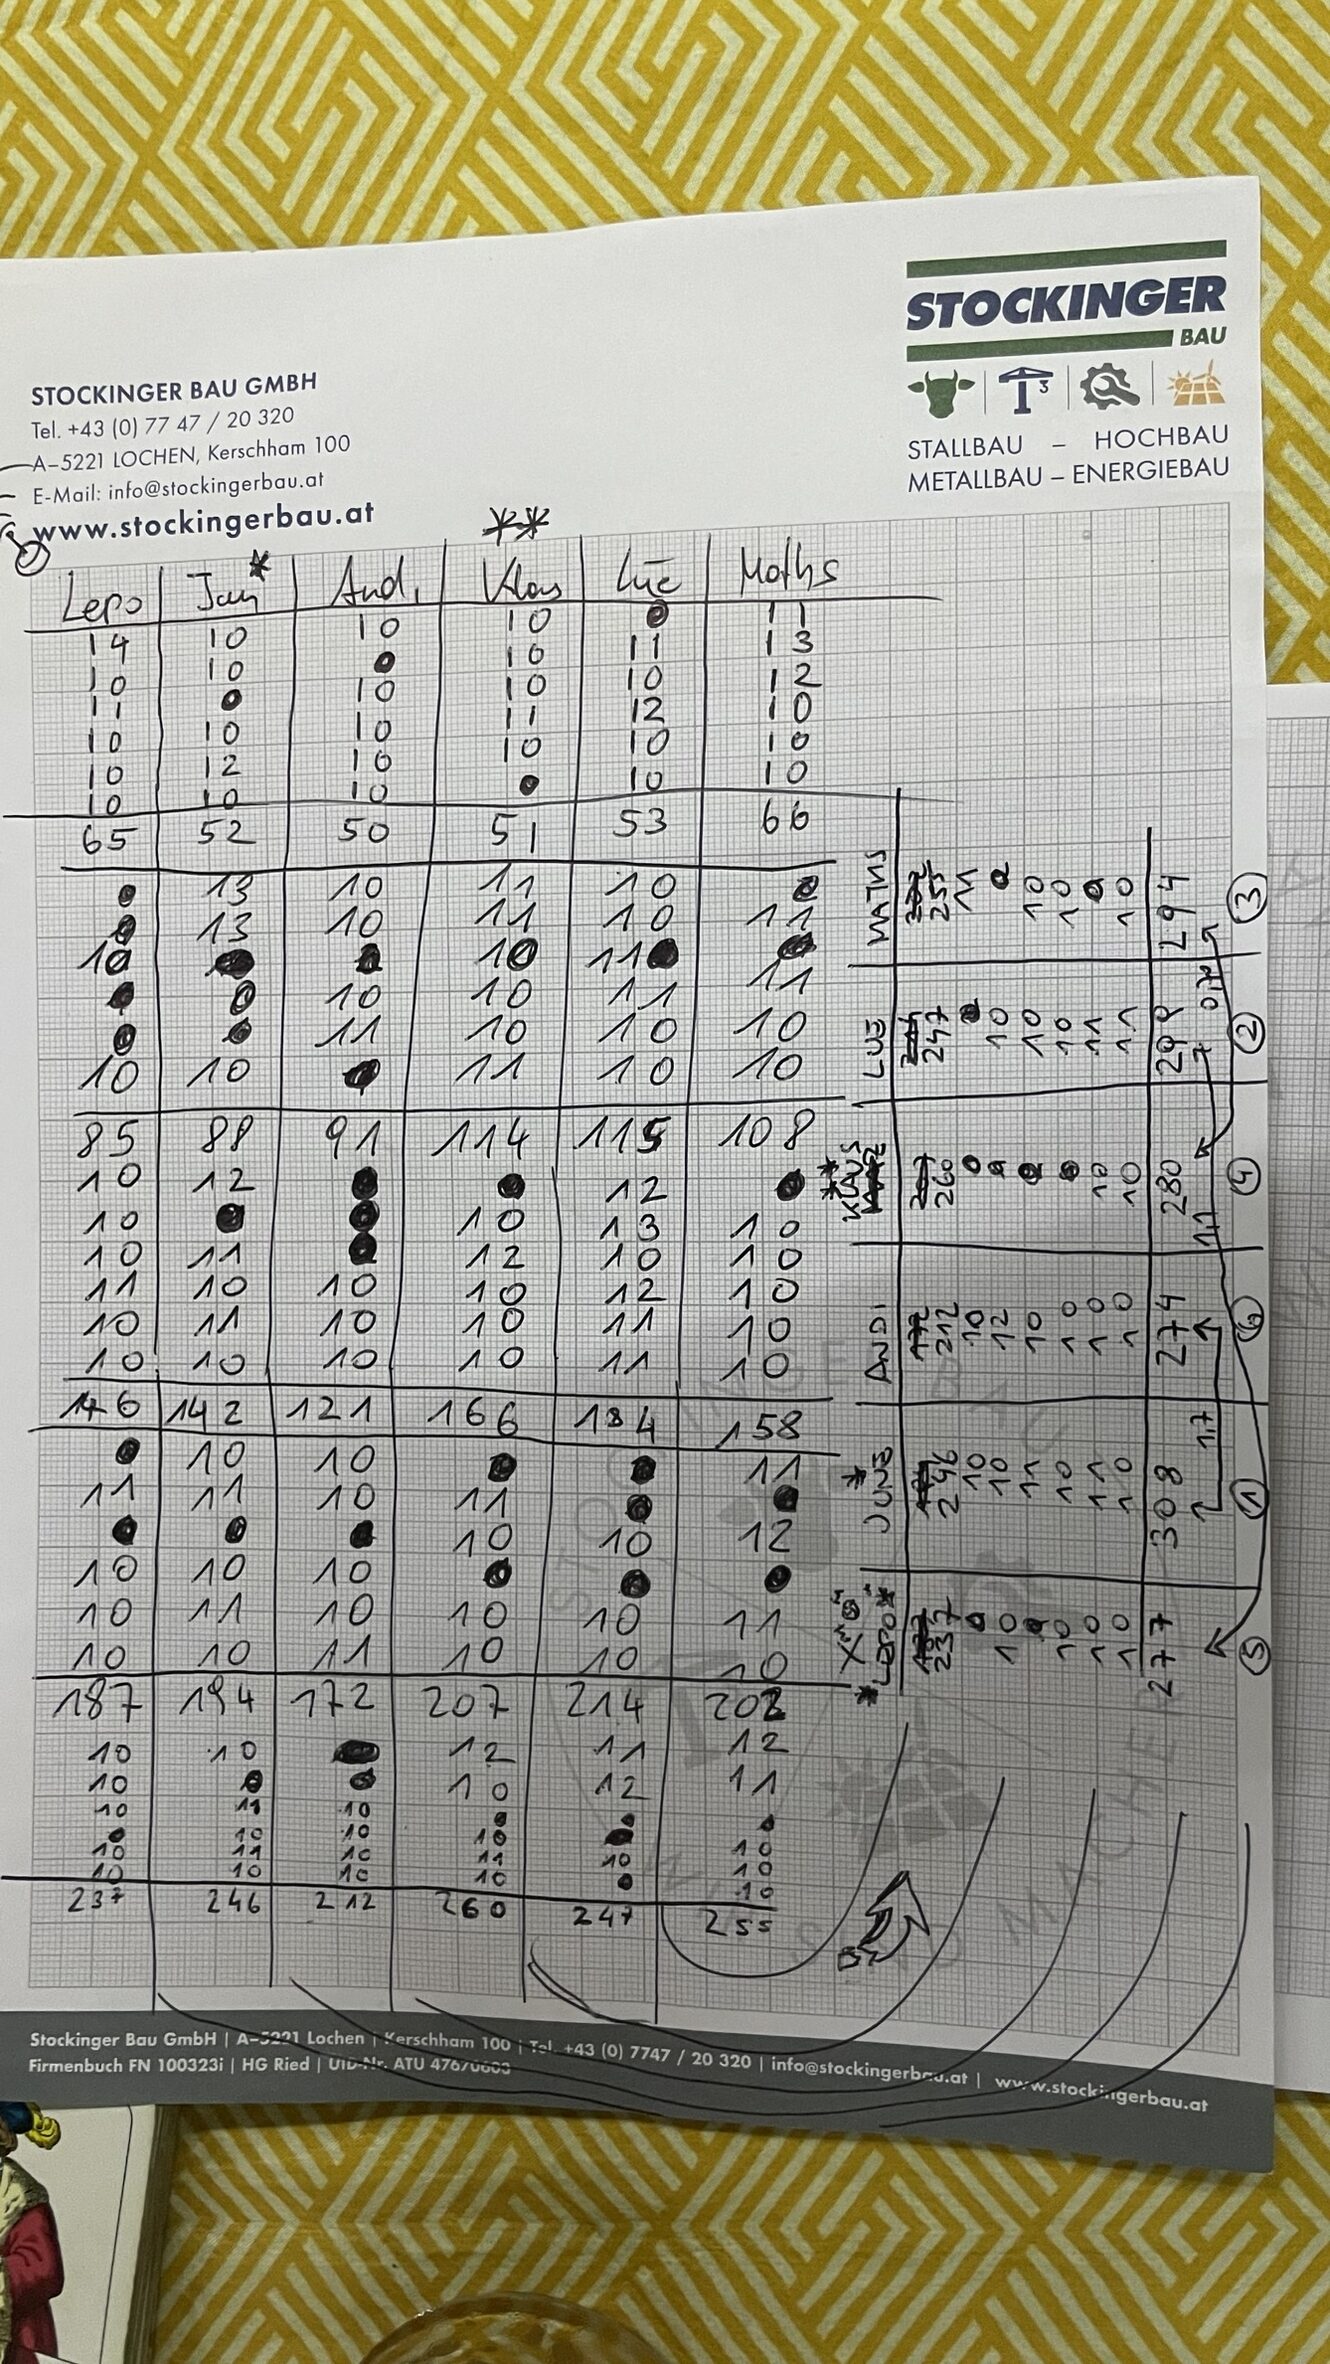 STOCKINGER
BAU
STOCKINGER BAU GMBH
Tel. +43 (0) 77 47 / 20 320
A–5221 LOCHEN, Kerschham 100
E-Mail: info@stockingerbau.at
www.stockingerbau.at
STALLBAU – HOCHBAU
METALLBAU – ENERGIEBAU
**
Lepo Jun* Andi Klaus Lue Maths
14 10 10 10 11
10 10 10 11 13
11 10 10 10 12
10 10 10 11 12 10
10 12 10 10 10 10
10 10 10 10 10
65 52 50 51 53 66
13 10 11 10
13 10 11 10 11
10 10 11
10 10 11 11
11 10 10 10
10 10 11 10 10
85 88 91 114 115 108
10 12 12
10 10 13 10
10 11 12 10 10
11 10 10 10 12 10
10 11 10 10 11 10
10 10 10 10 11 10
146 142 121 166 184 158
10 10 11
11 11 10 11
10 10 12
10 10 10
10 11 10 10 10 11
10 10 11 10 10 10
187 194 172 207 214 202
10 10 12 11 12
10 10 12 11
10 11 10
10 10 10
10 11 10 11 10 10
10 10 10 10 10
237 246 212 260 247 255
MATHS 255 11 10 10 10 294 3
LUE 247 10 10 10 11 11 299 2
** KLAUS 260 10 10 280 4
ANDI 212 10 12 10 10 10 10 274 6
JUN* 246 10 10 11 10 11 10 308 1
*LEPO* 237 10 10 10 10 277 5
1,1
1,7
Stockinger Bau GmbH | A–5221 Lochen | Kerschham 100 | Tel. +43 (0) 7747 / 20 320 | info@stockingerbau.at | www.stockingerbau.at
Firmenbuch FN 100323i | HG Ried | UID-Nr. ATU 47670603